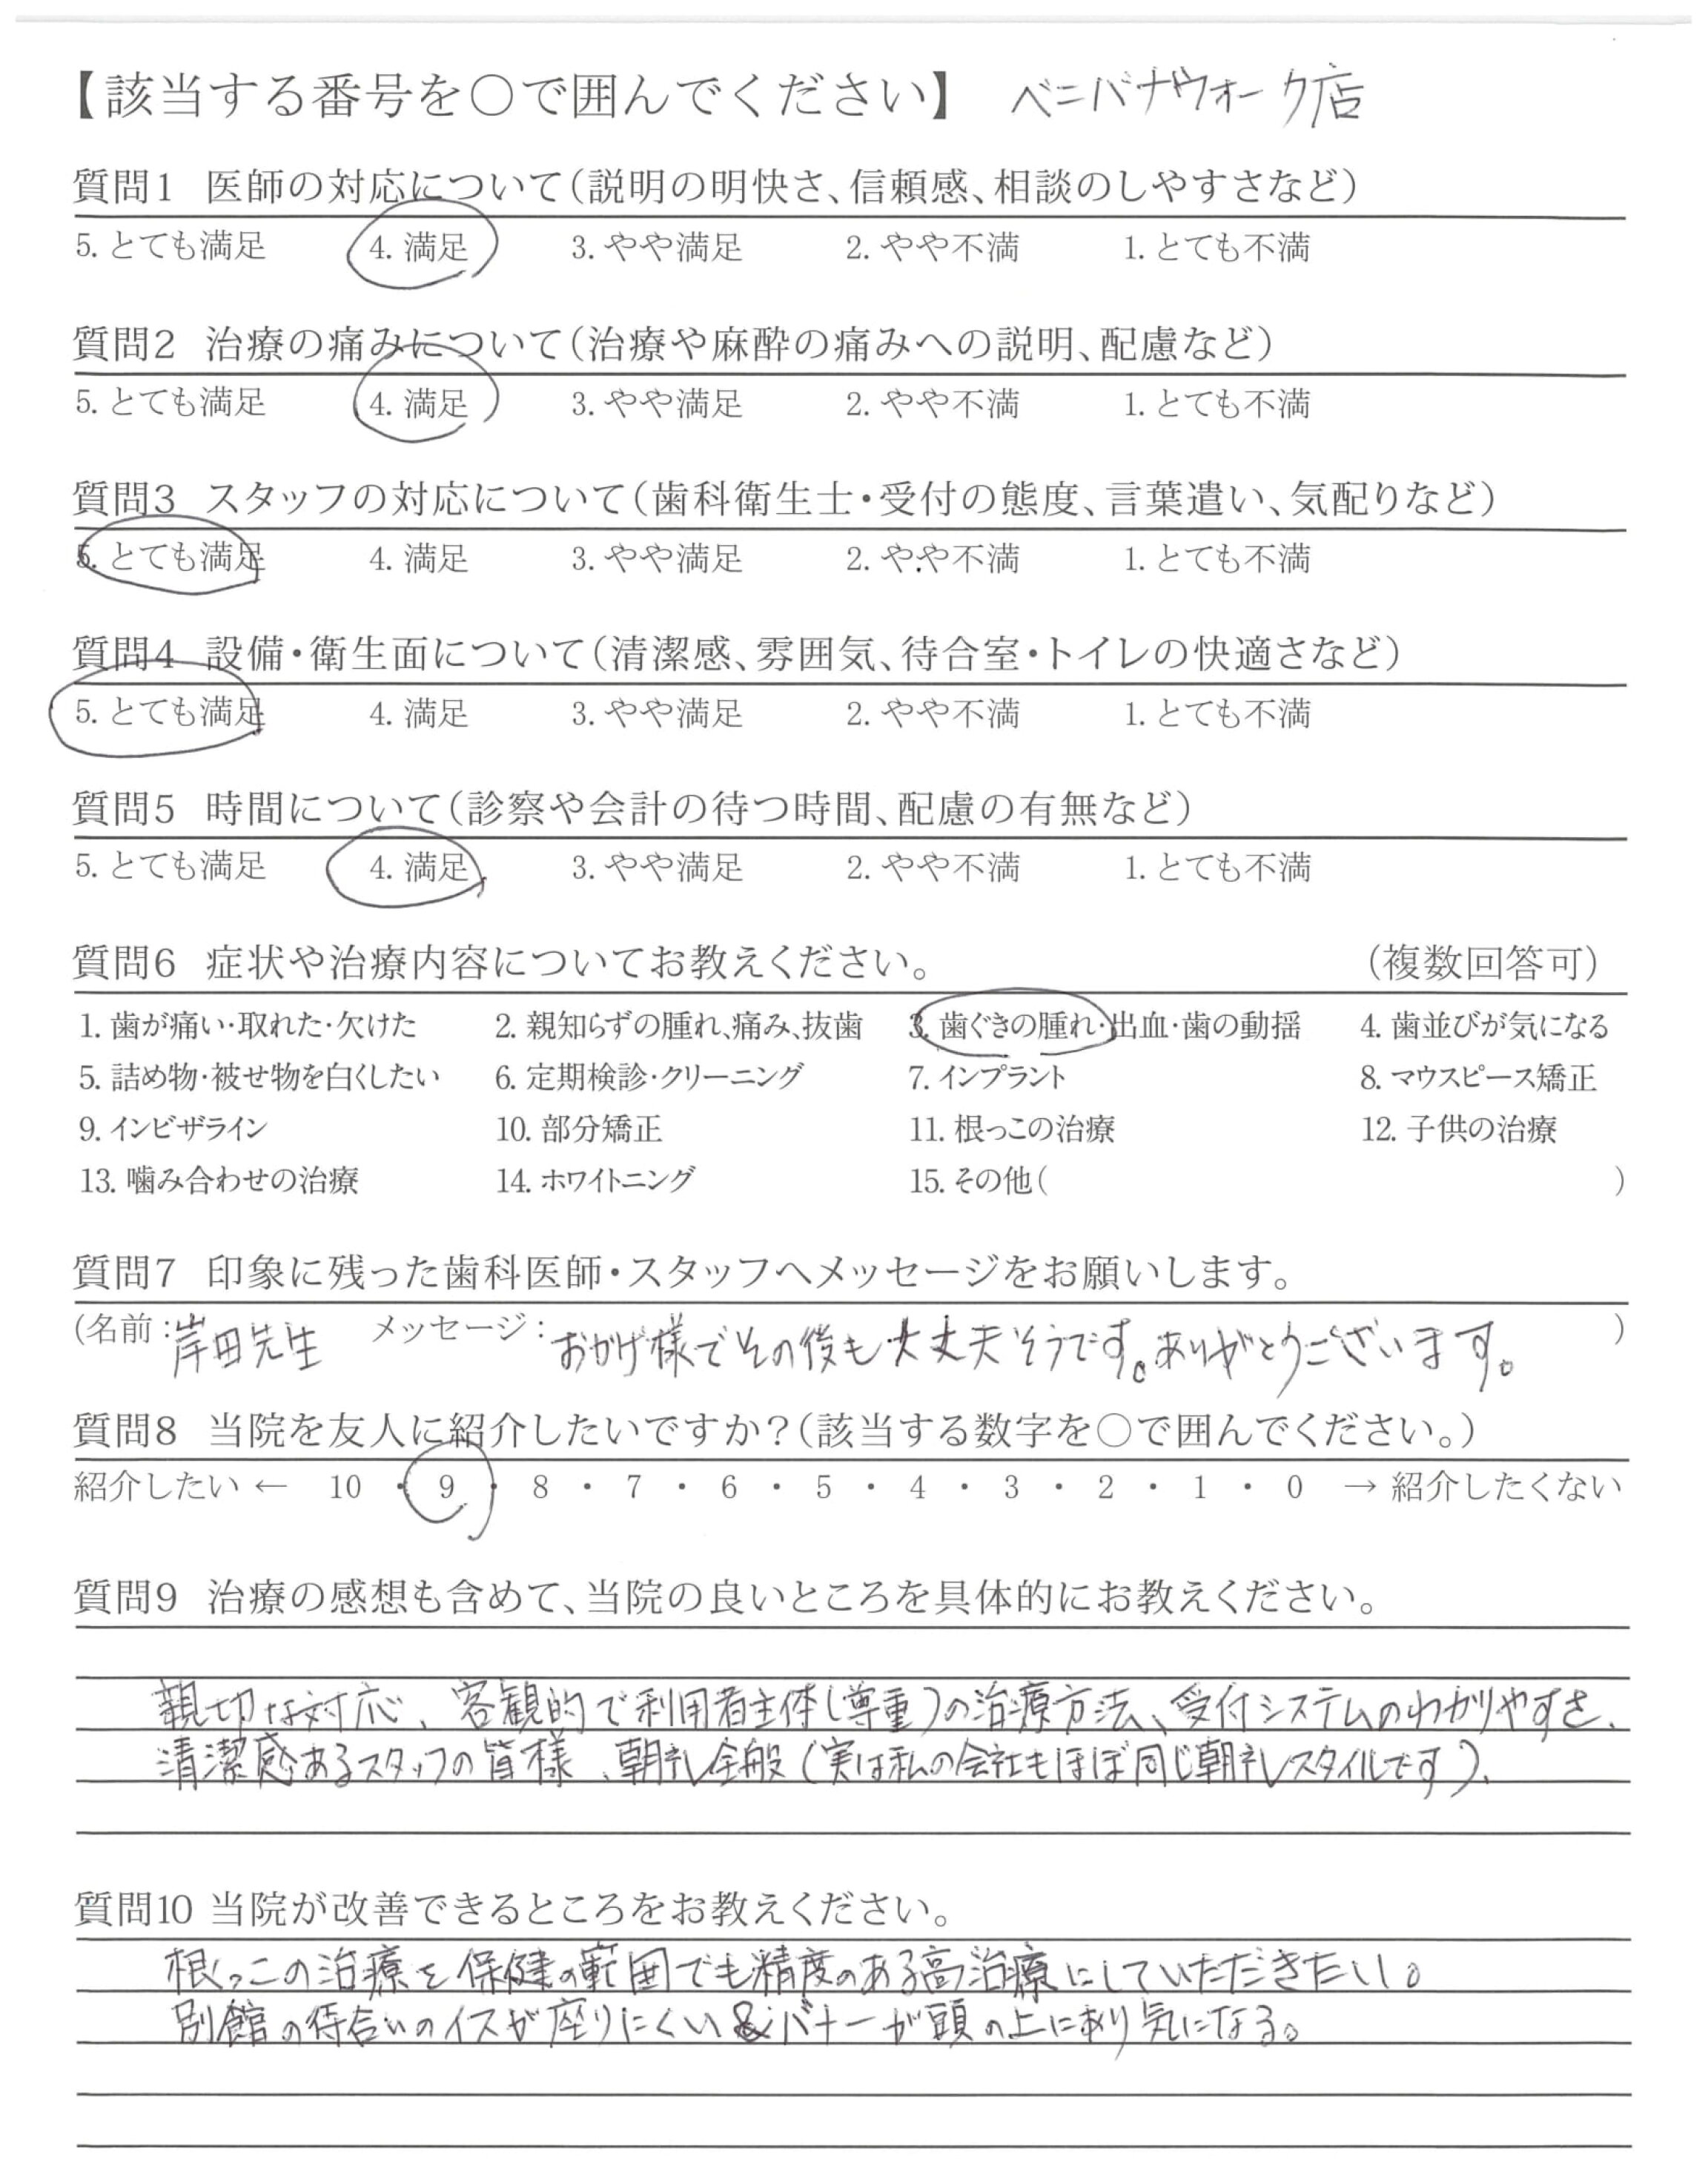 【該当する番号を○で囲んでください】 ベニバナウォーク店
質問1 医師の対応について(説明の明快さ、信頼感、相談のしやすさなど)
5. とても満足 4. 満足 3. やや満足 2. やや不満 1. とても不満
質問2 治療の痛みについて(治療や麻酔の痛みへの説明、配慮など)
5. とても満足 4. 満足 3. やや満足 2. やや不満 1. とても不満
質問3 スタッフの対応について(歯科衛生士・受付の態度、言葉遣い、気配りなど)
5. とても満足 4. 満足 3. やや満足 2. やや不満 1. とても不満
質問4 設備・衛生面について(清潔感、雰囲気、待合室・トイレの快適さなど)
5. とても満足 4. 満足 3. やや満足 2. やや不満 1. とても不満
質問5 時間について(診察や会計の待つ時間、配慮の有無など)
5. とても満足 4. 満足 3. やや満足 2. やや不満 1. とても不満
質問6 症状や治療内容についてお教えください。 (複数回答可)
1. 歯が痛い・取れた・欠けた 2. 親知らずの腫れ、痛み、抜歯 3. 歯ぐきの腫れ・出血・歯の動揺 4. 歯並びが気になる
5. 詰め物・被せ物を白くしたい 6. 定期検診・クリーニング 7. インプラント 8. マウスピース矯正
9. インビザライン 10. 部分矯正 11. 根っこの治療 12. 子供の治療
13. 噛み合わせの治療 14. ホワイトニング 15. その他( )
質問7 印象に残った歯科医師・スタッフへメッセージをお願いします。
(名前:岸田先生 メッセージ:おかげ様でその後も大丈夫そうです。ありがとうございます。 )
質問8 当院を友人に紹介したいですか?(該当する数字を○で囲んでください。)
紹介したい ← 10 ・ 9 ・ 8 ・ 7 ・ 6 ・ 5 ・ 4 ・ 3 ・ 2 ・ 1 ・ 0 → 紹介したくない
質問9 治療の感想も含めて、当院の良いところを具体的にお教えください。
親切な対応、客観的で利用者主体(尊重)の治療方法、受付システムのわかりやすさ、
清潔感あるスタッフの皆様、朝礼全般(実は私の会社もほぼ同じ朝礼スタイルです)、
質問10 当院が改善できるところをお教えください。
根っこの治療を保健の範囲でも精度のある高治療にしていただきたい。
別館の待合いのイスが座りにくい&バナーが頭の上にあり気になる。